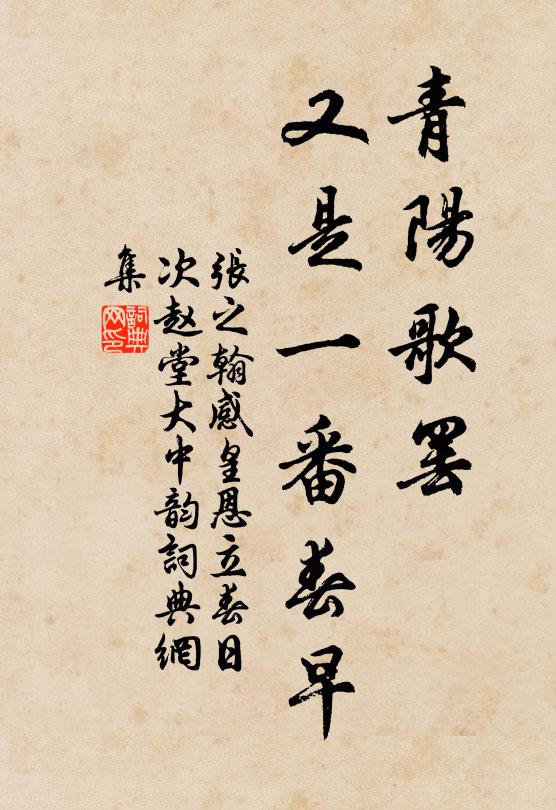 青陽歌罢
又是一番春早
張之翰感皇恩立春日
次赵堂大中韵詞典網
集
詞典网印